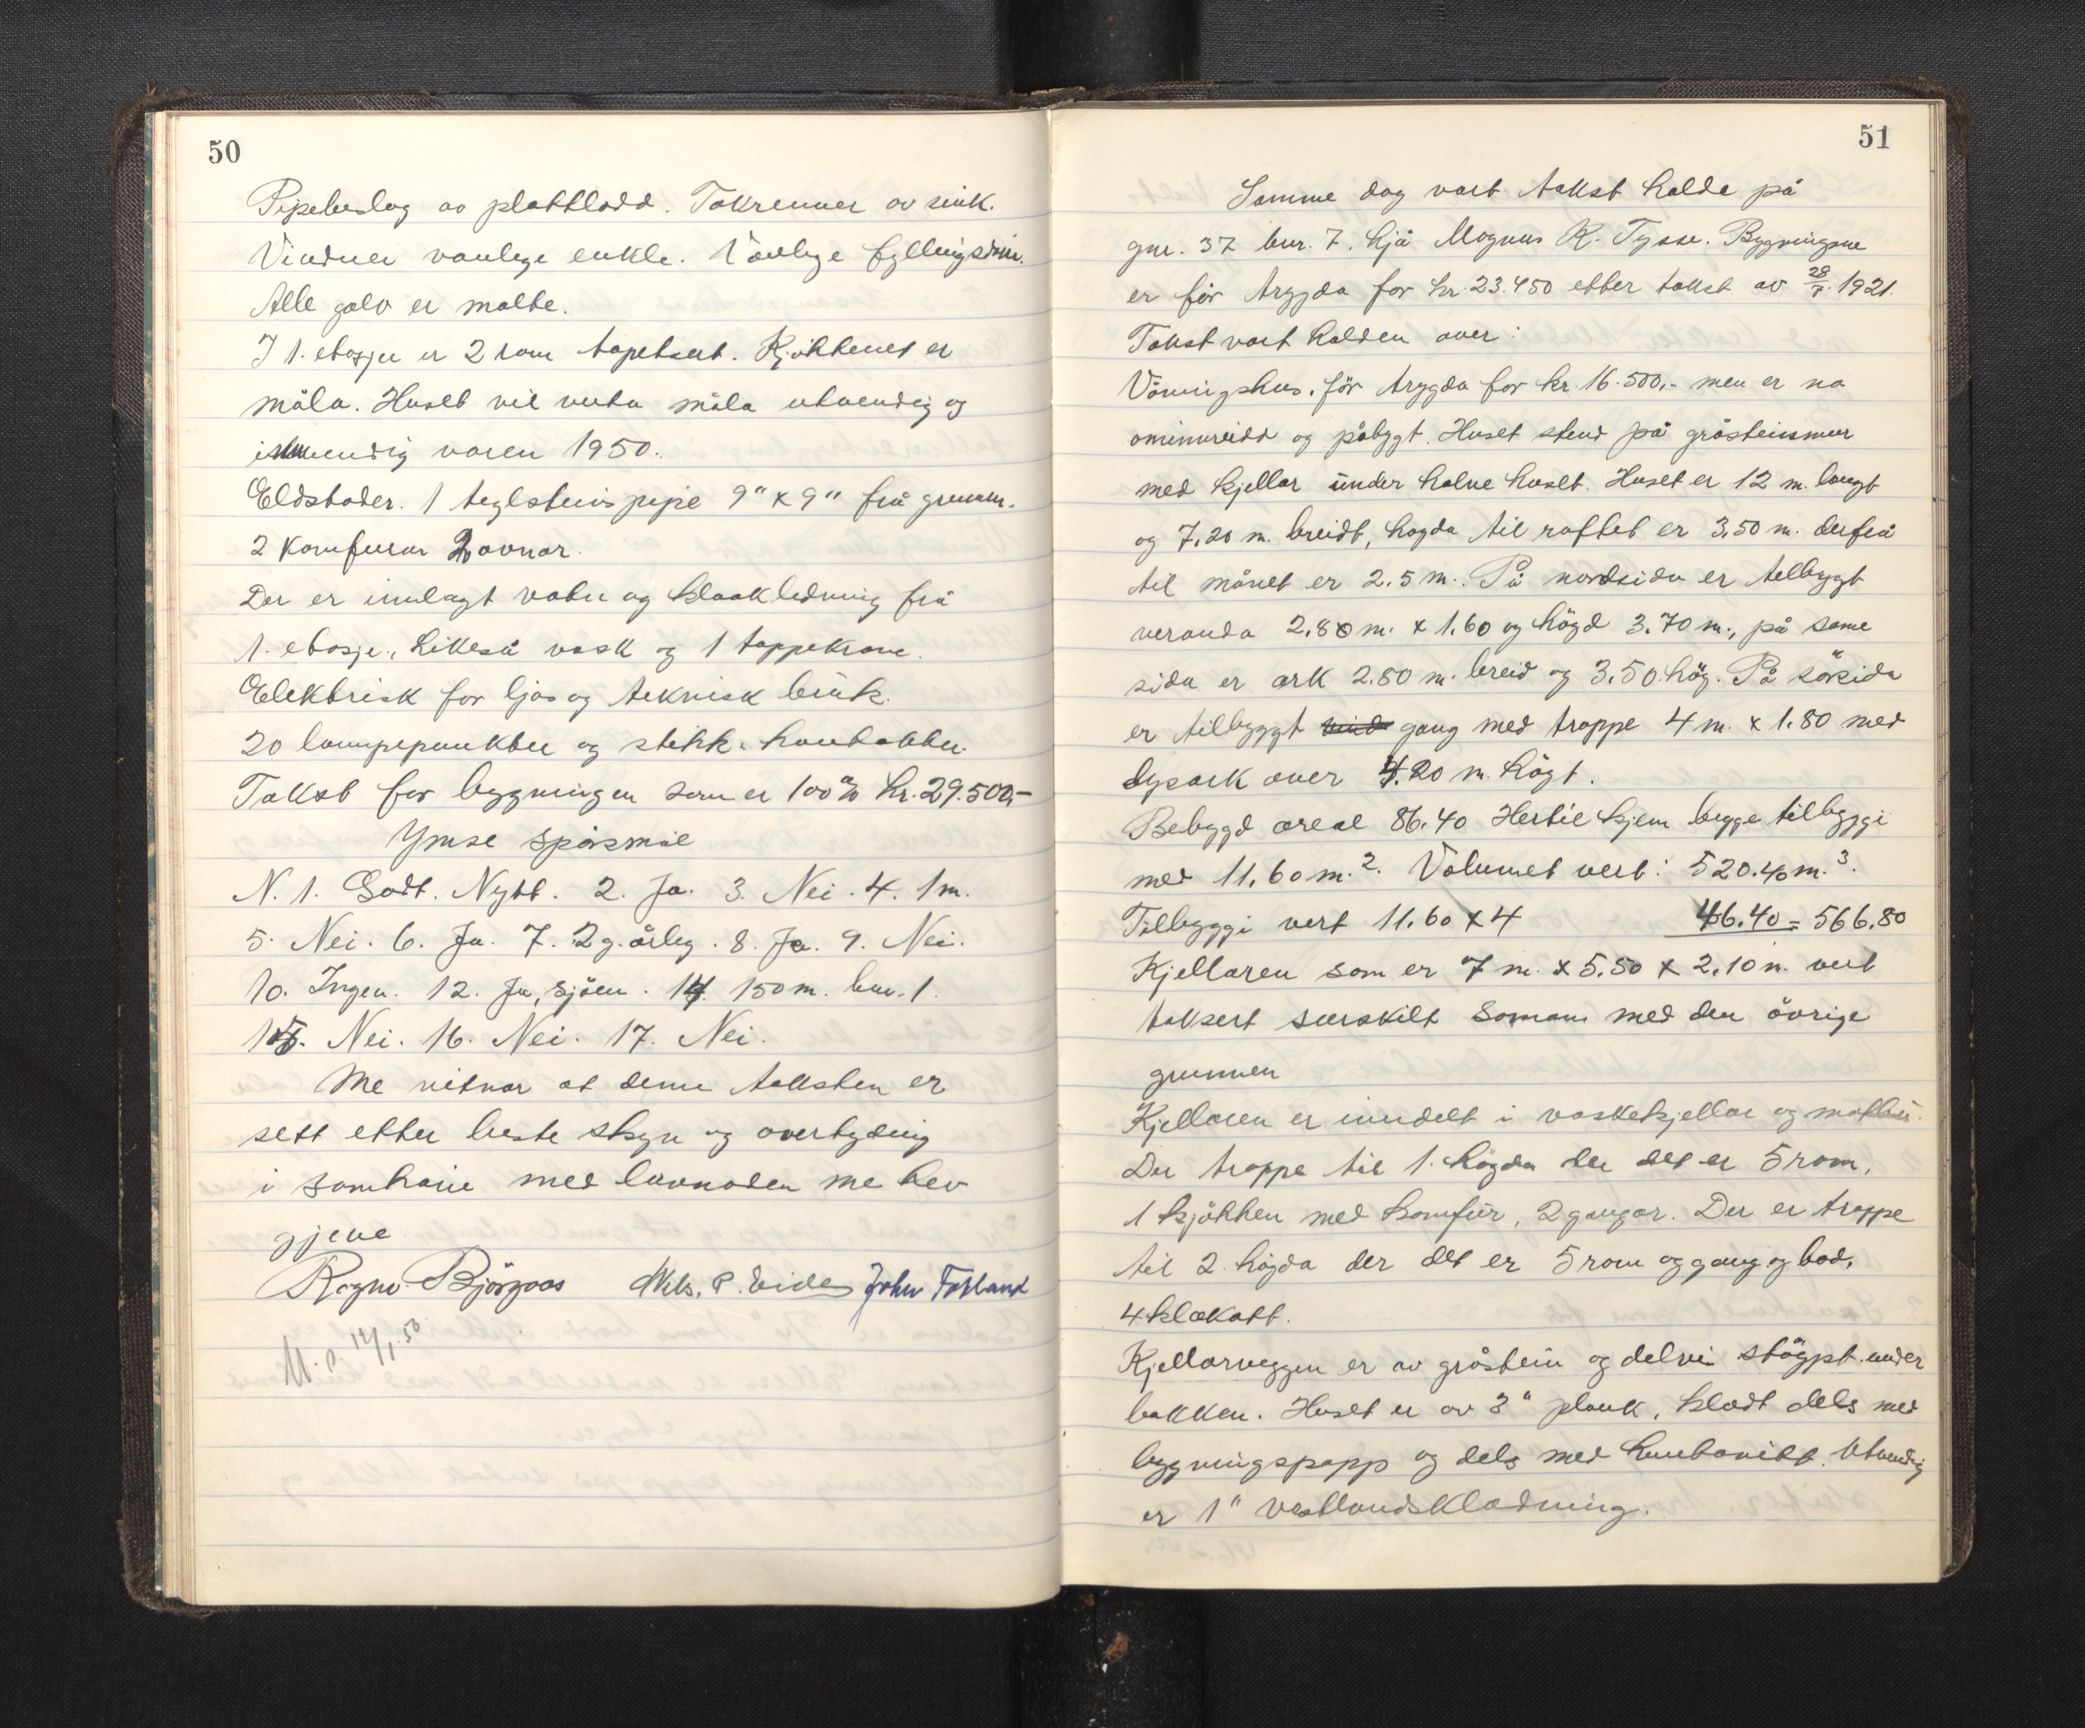 50
Pipebeslag av plattlodd. Takrenner av sink.
Vinduer vanlege enkle. Vanlege fyllingsdører.
Alle golv er malte.
I 1. etasje er 2 rom tapetsert. Kjøkkenet er
måla. Huset vil verta måla utvendig og
innvendig våren 1950.
Eldstader. 1 teglsteinspipe 9" x 9" frå grunnen.
2 komfurar 2 ovnar.
Der er innlagt vatn og kloakledning frå
1. etasje, likeså vask og 1 tappekrane.
Elektrisk for ljos og teknisk bruk.
20 lampepunkter og stikk-kontakter.
Takst for bygningen som er 100% kr. 29.500,-
Ymse spörsmål
N. 1. Godt. Nytt. 2. Ja. 3. Nei. 4. 1m.
5. Nei. 6. Ja. 7. 2 g. årleg. 8. Ja. 9. Nei.
10. Ingen. 12. Ja, sjöen. 14. 150 m. bnr. 1.
15. Nei. 16. Nei. 17. Nei.
Me vitnar at denne taksten er
sett etter beste skyn og overtyding
i samhøve med lovnaden me hev
gjeve
Ragnv. Björgaas Nels. P. Eide John Tøsland
M. 12/1.50
51
Samme dag vart takst halde på
gnr. 37 bnr. 7. hjå Magnus K. Tysse. Bygningane
er før trygda for kr. 23.450 etter takst av 28/7. 1921.
Takst vart halden over:
Våningshus, för trygda for kr. 16.500,- men er no
ominnreidd og påbygt. Huset stend på gråsteinsmur
med kjellar under halve huset. Huset er 12 m. langt
og 7,20 m. breidt, høgda til raftet er 3,50 m. derfrå
til mönet er 2.5 m. På nordsida er tilbygt
veranda 2.80 m. x 1.60 og högd 3.70 m., på same
sida er ark 2.80 m. breid og 3.50 hög. På sörsida
er tilbyggt gang med trappe 4 m. x 1.80 med
løpark over 4.20 m. högt.
Bebygd areal 86.40 Hertil kjem begge tilbyggi
med 11.60 m.2. Volumet vert: 520.40 m.3.
Tilbyggi vert 11.60 x 4 46.40 = 566.80
Kjellaren som er 7 m. x 5.50 x 2.10 m. vert
taksert serskilt saman med den övrige
grunnen
Kjellaren er inndelt i vaskekjellar og matbu.
Der trappe til 1. högda der det er 5 rom,
1 kjökken med komfür, 2 gangar. Der er trappe
til 2. högda der det er 5 rom og gang og bod,
4 klækott.
Kjellarveggen er av gråstein og delvis stöypt under
bakken. Huset er av 3" plank, klædt dels med
bygningspapp og dels med huntonitt. Utvendig
er 1" vestlandsklædning.